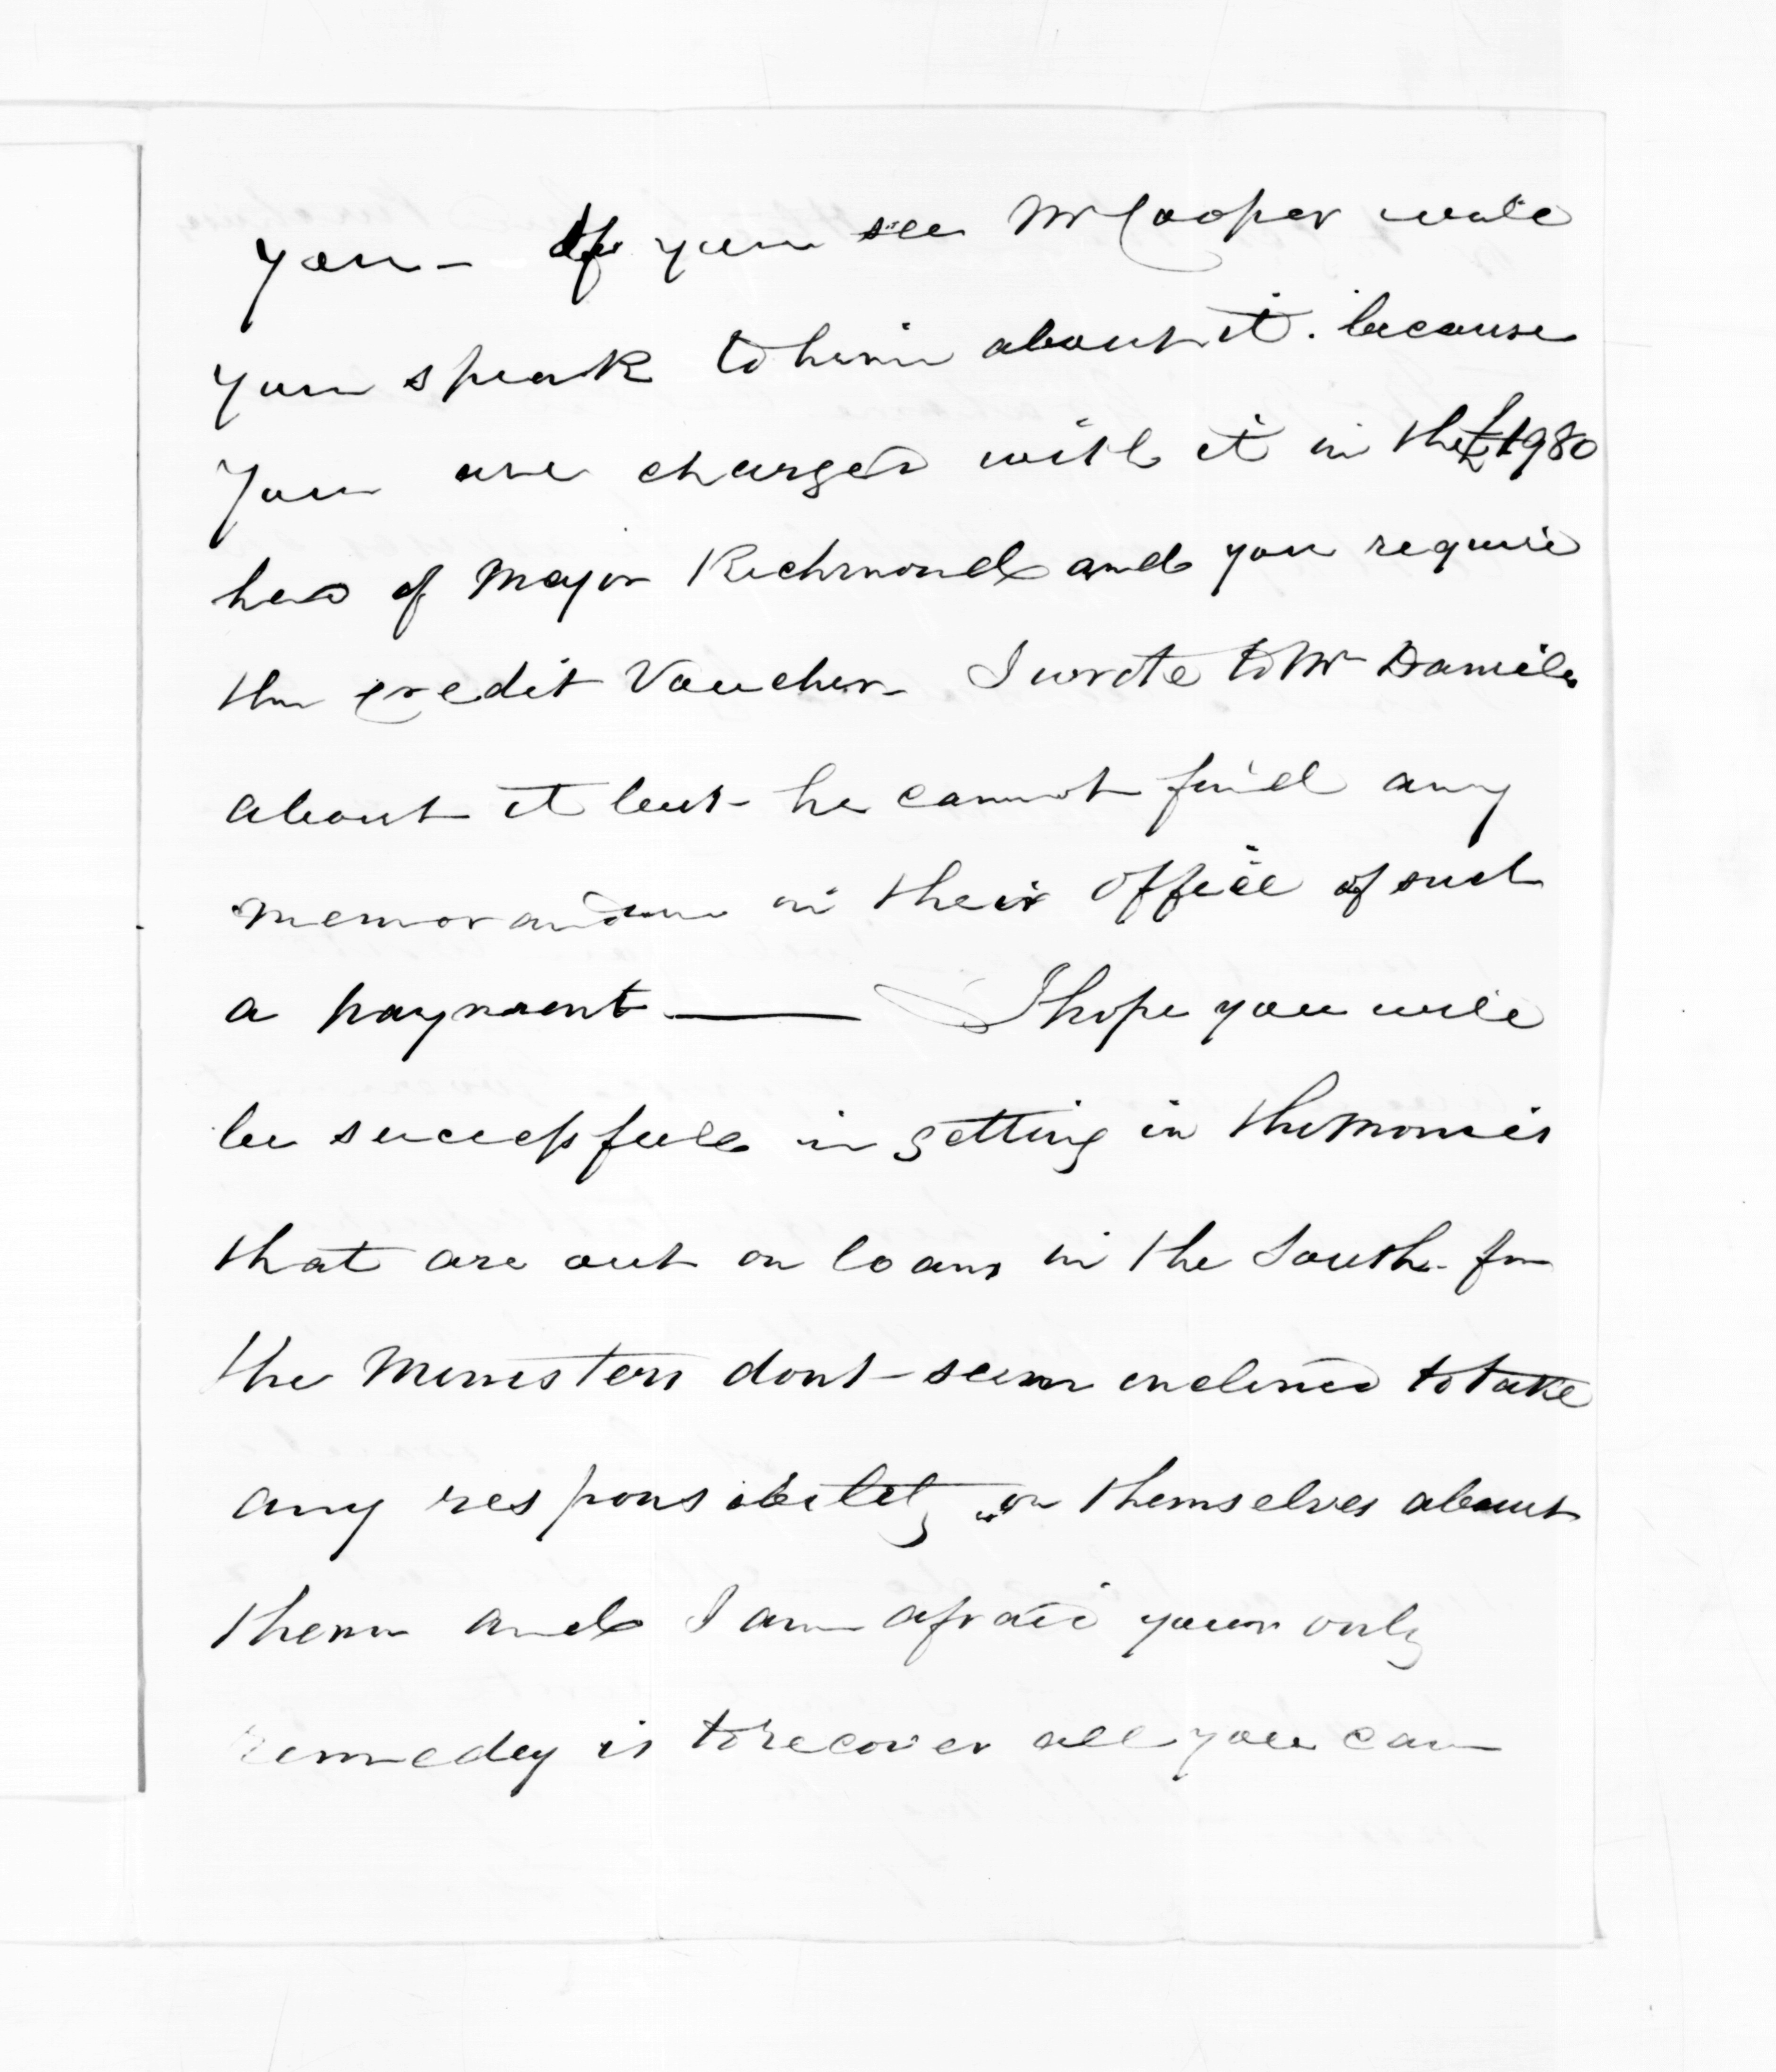 you - If you see Mr Cooper will
you speak to him about it. because
you are charged with it in the £1980
had of Major Richmond and you require
the credit Voucher - I wrote to Mr Daniels
about it but he cannot find any
memorandum in their office of such
a payment —— I hope you will
be successfull in getting in the monies
that are out on loans in the South - for
the Ministers dont seem inclined to take
any responsibility on themselves about
them and I am afraid your only
remedy is to recover all you can